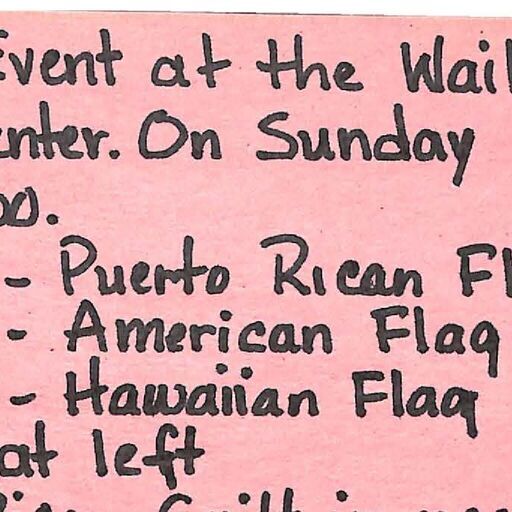 Event at the Wail
enter. On Sunday
00.
- Puerto Rican Fl
- American Flag
- Hawaiian Flag
at left